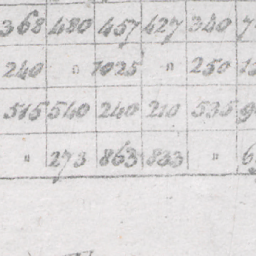 368 480 457 427 340 7
240 " 1025 " 250 12
515 540 240 210 535 9
" 273 863 833 " 6